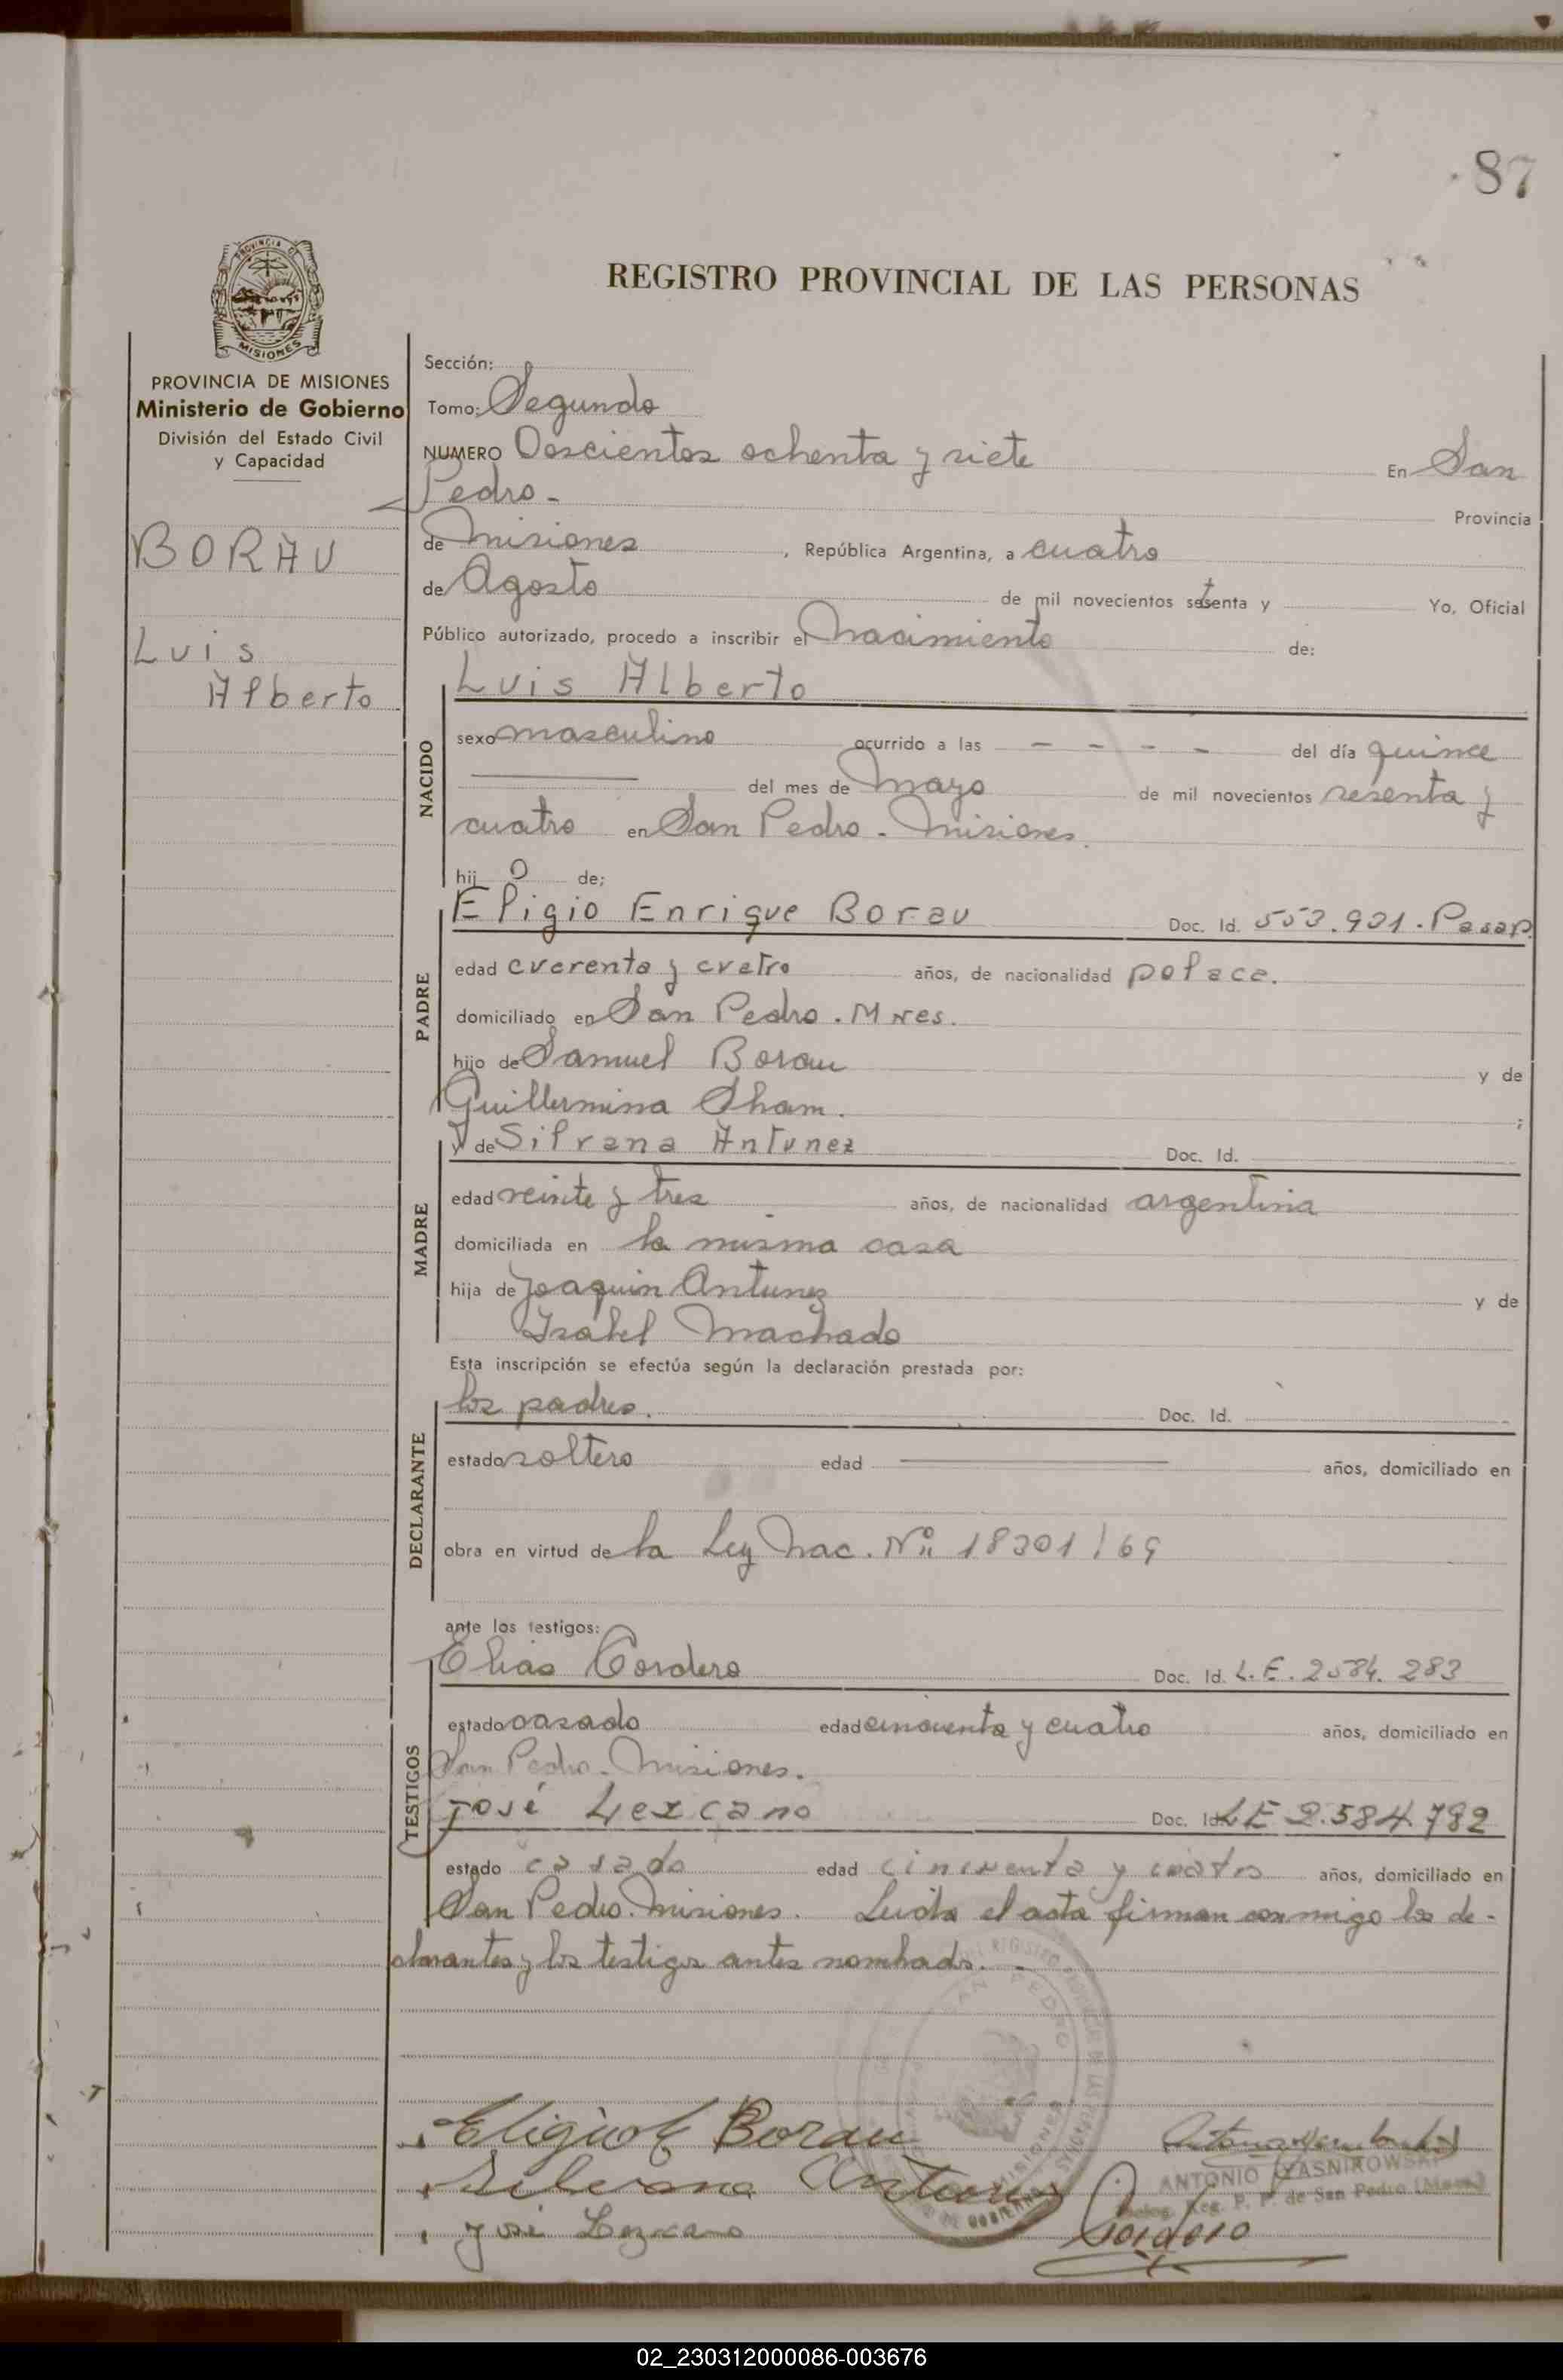 87
PROVINCIA DE
MISIONES
REGISTRO PROVINCIAL DE LAS PERSONAS
PROVINCIA DE MISIONES
Ministerio de Gobierno
División del Estado Civil
y Capacidad
BORAU
Luis
Alberto
Sección:
Tomo: Segundo
NUMERO Doscientos ochenta y siete En San
Pedro - Provincia
de Misiones, República Argentina, a cuatro
de Agosto de mil novecientos setenta y Yo, Oficial
Público autorizado, procedo a inscribir el Nacimiento de:
Luis Alberto
NACIDO
sexo masculino ocurrido a las - - - - del día quince
del mes de Mayo de mil novecientos sesenta y
cuatro en San Pedro - Misiones.
hij o de:
PADRE
Eligio Enrique Borau Doc. Id. 553.901. Pasap.
edad cuarenta y cuatro años, de nacionalidad polaca.
domiciliado en San Pedro. Mnes.
hijo de Samuel Borau y de
Guillermina Sham. ;
MADRE
Y de Silvana Antunez Doc. Id.
edad veinte y tres años, de nacionalidad argentina
domiciliada en la misma casa
hija de Joaquin Antunez y de
Isabel Machado
Esta inscripción se efectúa según la declaración prestada por:
DECLARANTE
los padres. Doc. Id.
estado soltero edad años, domiciliado en
obra en virtud de la Ley Nac. Nº 18301/69
ante los testigos:
TESTIGOS
Elias Cordero Doc. Id. L.E. 2584.283
estado casado edad cincuenta y cuatro años, domiciliado en
San Pedro - Misiones.
José Lezcano Doc. Id. L.E 2.584.792
estado casado edad cincuenta y cuatro años, domiciliado en
San Pedro. Misiones. Leida el acta firman conmigo los de-
clarantes y los testigos antes nombrados. -
Eligio E Borau
Silvana Antunez
ANTONIO YASNIKOWSKI
Deleg. Reg. P. P. de San Pedro (Mnes)
José Lezcano Cordero
SAN PEDRO
MISIONES
02_230312000086-003676